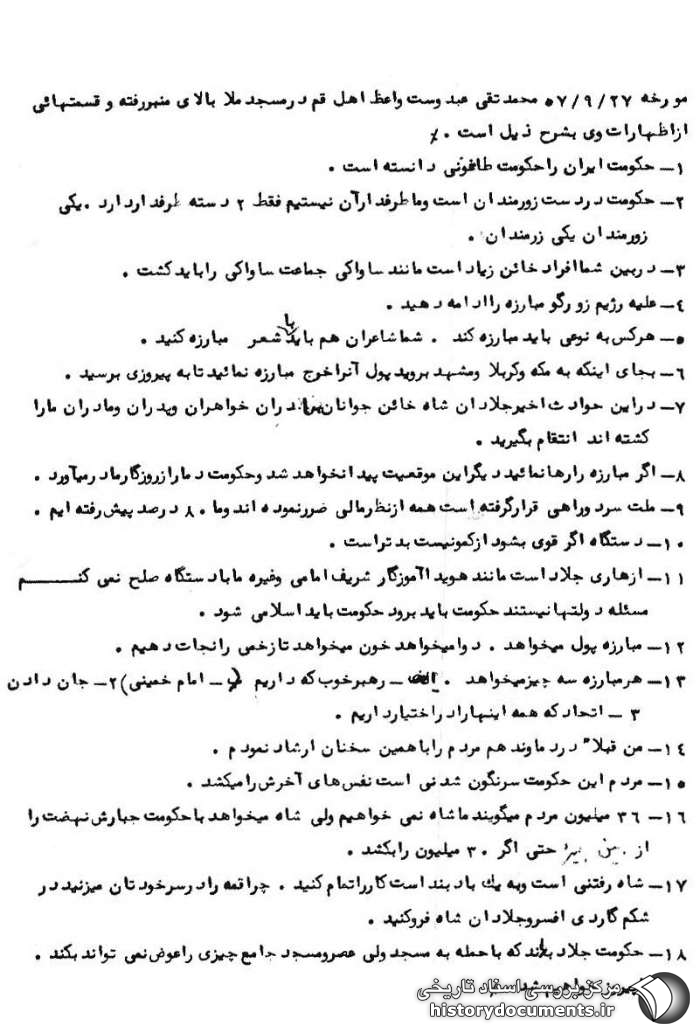 مورخه ۵۷/۹/۲۷ محمد تقی عبدوست واعظ اهل قم در مسجد ملا بالای منبر رفته و قسمتهائی
از اظهارات وی بشرح ذیل است ./
۱ – حکومت ایران را حکومت طاغوتی دانسته است .
۲ – حکومت در دست زورمندان است و ما طرفدار آن نیستیم فقط ۲ دسته طرفدار دارد . یکی
زورمندان یکی زرمندان .
۳ – در بین شما افراد خائن زیاد است مانند ساواکی جماعت ساواکی را باید کشت .
۴ – علیه رژیم زورگو مبارزه را ادامه دهید .
۵ – هرکس به نوعی باید مبارزه کند . شما شاعران هم باید با شعر مبارزه کنید .
۶ – بجای اینکه به مکه و کربلا و مشهد بروید پول آنرا خرج مبارزه نمائید تا به پیروزی برسید .
۷ – در این حوادث اخیر جلادان شاه خائن جوانان برادران خواهران و پدران و مادران ما را
کشته اند انتقام بگیرید .
۸ – اگر مبارزه را رها نمائید دیگر این موقعیت پیدا نخواهد شد و حکومت دمار از روزگار ما در میآورد .
۹ – ملت سر دوراهی قرار گرفته است همه از نظر مالی ضرر نموده اند و ما ۸۰ درصد پیش رفته ایم .
۱۰ – دستگاه اگر قوی بشود از کمونیست بدتر است .
۱۱ – ازهاری جلاد است مانند هویدا آموزگار شریف امامی وغیره ما با دستگاه صلح نمی کنـــــم
مسئله دولتها نیستند حکومت باید برود حکومت باید اسلامی شود .
۱۲ – مبارزه پول میخواهد . دوا میخواهد خون میخواهد تا زخمی را نجات دهیم .
۱۳ – هر مبارزه سه چیز میخواهد . – رهبر خوب که داریم ( – امام خمینی) ۲ – جان دادن
۳ – اتحاد که همه اینها را در اختیار داریم .
۱۴ – من قبلا" در دماوند هم مردم را با همین سخنان ارشاد نمودم .
۱۵ – مردم این حکومت سرنگون شدنی است نفس های آخرش را میکشد .
۱۶ – ۳۶ میلیون مردم میگویند ما شاه نمی خواهیم ولی شاه میخواهد با حکومت جبارش نهضت را
از بین ببرد حتی اگر ۳۰ میلیون را بکشد .
۱۷ – شاه رفتنی است و به یك باد بند است کار را تمام کنید . چرا قمه را در سر خودتان میزنید در
شکم گاردی افسر و جلادان شاه فرو کنید .
۱۸ – حکومت جلاد بداند که با حمله به مسجد ولی عصر و مسجد جامع چیزی را عوض نمی تواند بکند .
مرکز بررسی اسناد تاریخی
historydocuments.ir